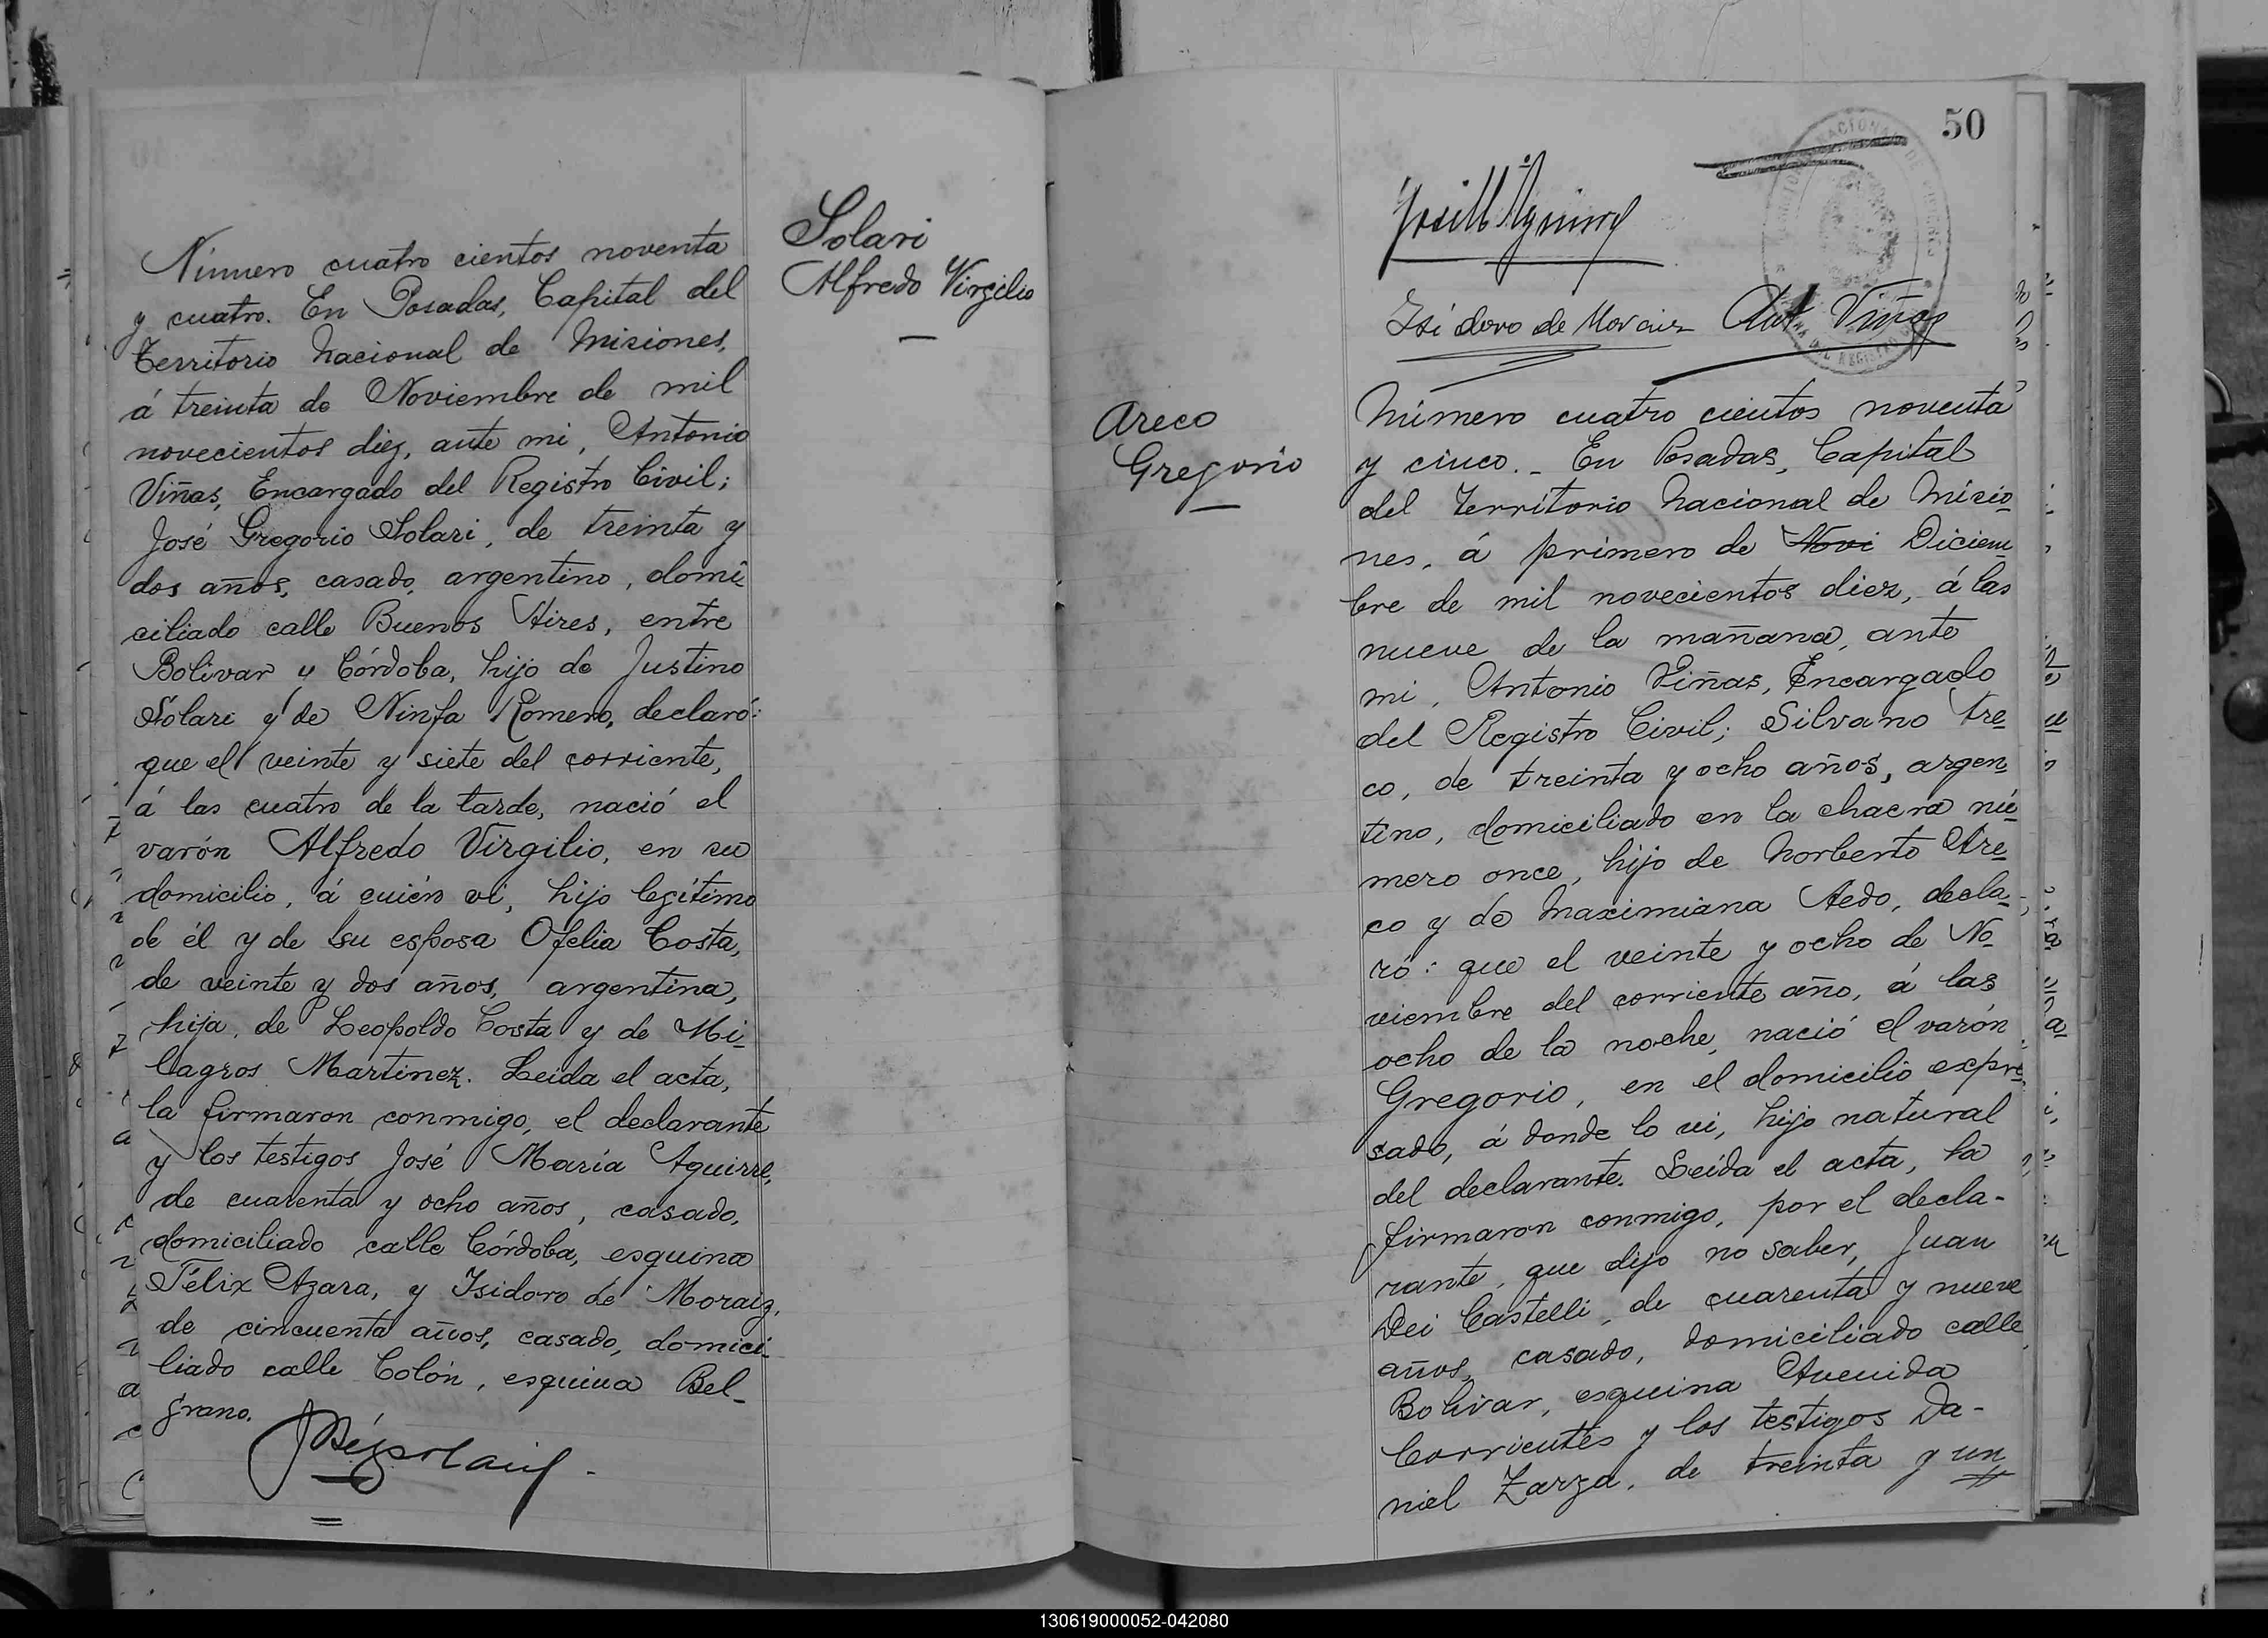 Número cuatro cientos noventa
y cuatro. En Posadas, Capital del
Territorio Nacional de Misiones,
á treinta de Noviembre de mil
novecientos diez, ante mi, Antonio
Viñas, Encargado del Registro Civil;
José Gregorio Solari, de treinta y
dos años, casado, argentino, domi-
ciliado calle Buenos Aires, entre
Bolívar y Córdoba, hijo de Justino
Solari y de Ninfa Romero, declaró:
que el veinte y siete del corriente,
á las cuatro de la tarde, nació el
varón Alfredo Virgilio, en su
domicilio, á quién ví, hijo legítimo
de él y de su esposa Ofelia Costa,
de veinte y dos años, argentina,
hija de Leopoldo Costa y de Mi-
lagros Martinez. Leida el acta,
la firmaron conmigo, el declarante
y los testigos José María Aguirre,
de cuarenta y ocho años, casado,
domiciliado calle Córdoba, esquina
Félix Azara, y Isidoro de Moraiz,
de cincuenta años, casado, domici-
liado calle Colón, esquina Bel-
grano.
Solari
Alfredo Virgilio
50
Isidoro de Moraiz Ant Viñas
Areco
Gregorio
Número cuatro cientos noventa
y cinco.- En Posadas, Capital
del Territorio Nacional de Misio-
nes, á primero de Novi Diciem
bre de mil novecientos diez, á las
nueve de la mañana, ante
mi, Antonio Viñas, Encargado
del Registro Civil; Silvano Are-
co, de treinta y ocho años, argen-
tino, domiciliado en la chacra nú-
mero once, hijo de Norberto Are-
co y de Maximiana Aedo, decla-
ró: que el veinte y ocho de No-
viembre del corriente año, á las
ocho de la noche, nació el varón
Gregorio, en el domicilio expre-
sado, á donde lo vi, hijo natural
del declarante. Leída el acta, la
firmaron conmigo, por el decla-
rante, que dijo no saber, Juan
Dei Castelli, de cuarenta y nueve
años, casado, domiciliado calle
Bolivar, esquina Avenida
Corrientes y los testigos Da-
niel Zarza, de treinta y un
130619000052-042080